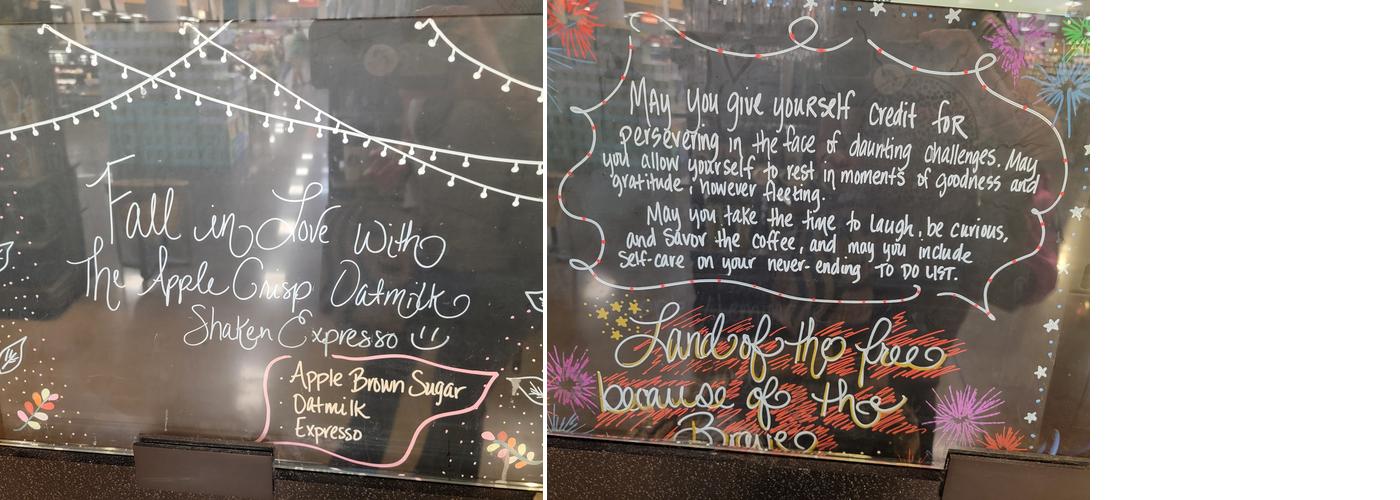 Fall in Love With
The Apple Crisp Oatmilk
Shaken Expresso
Apple Brown Sugar
Oatmilk
Expresso
May you give yourself credit for
persevering in the face of daunting challenges. May
you allow yourself to rest in moments of goodness and
gratitude, however fleeting.
May you take the time to laugh, be curious,
and savor the coffee, and may you include
self-care on your never-ending TO DO LIST.
Land of the free
because of the
Brave